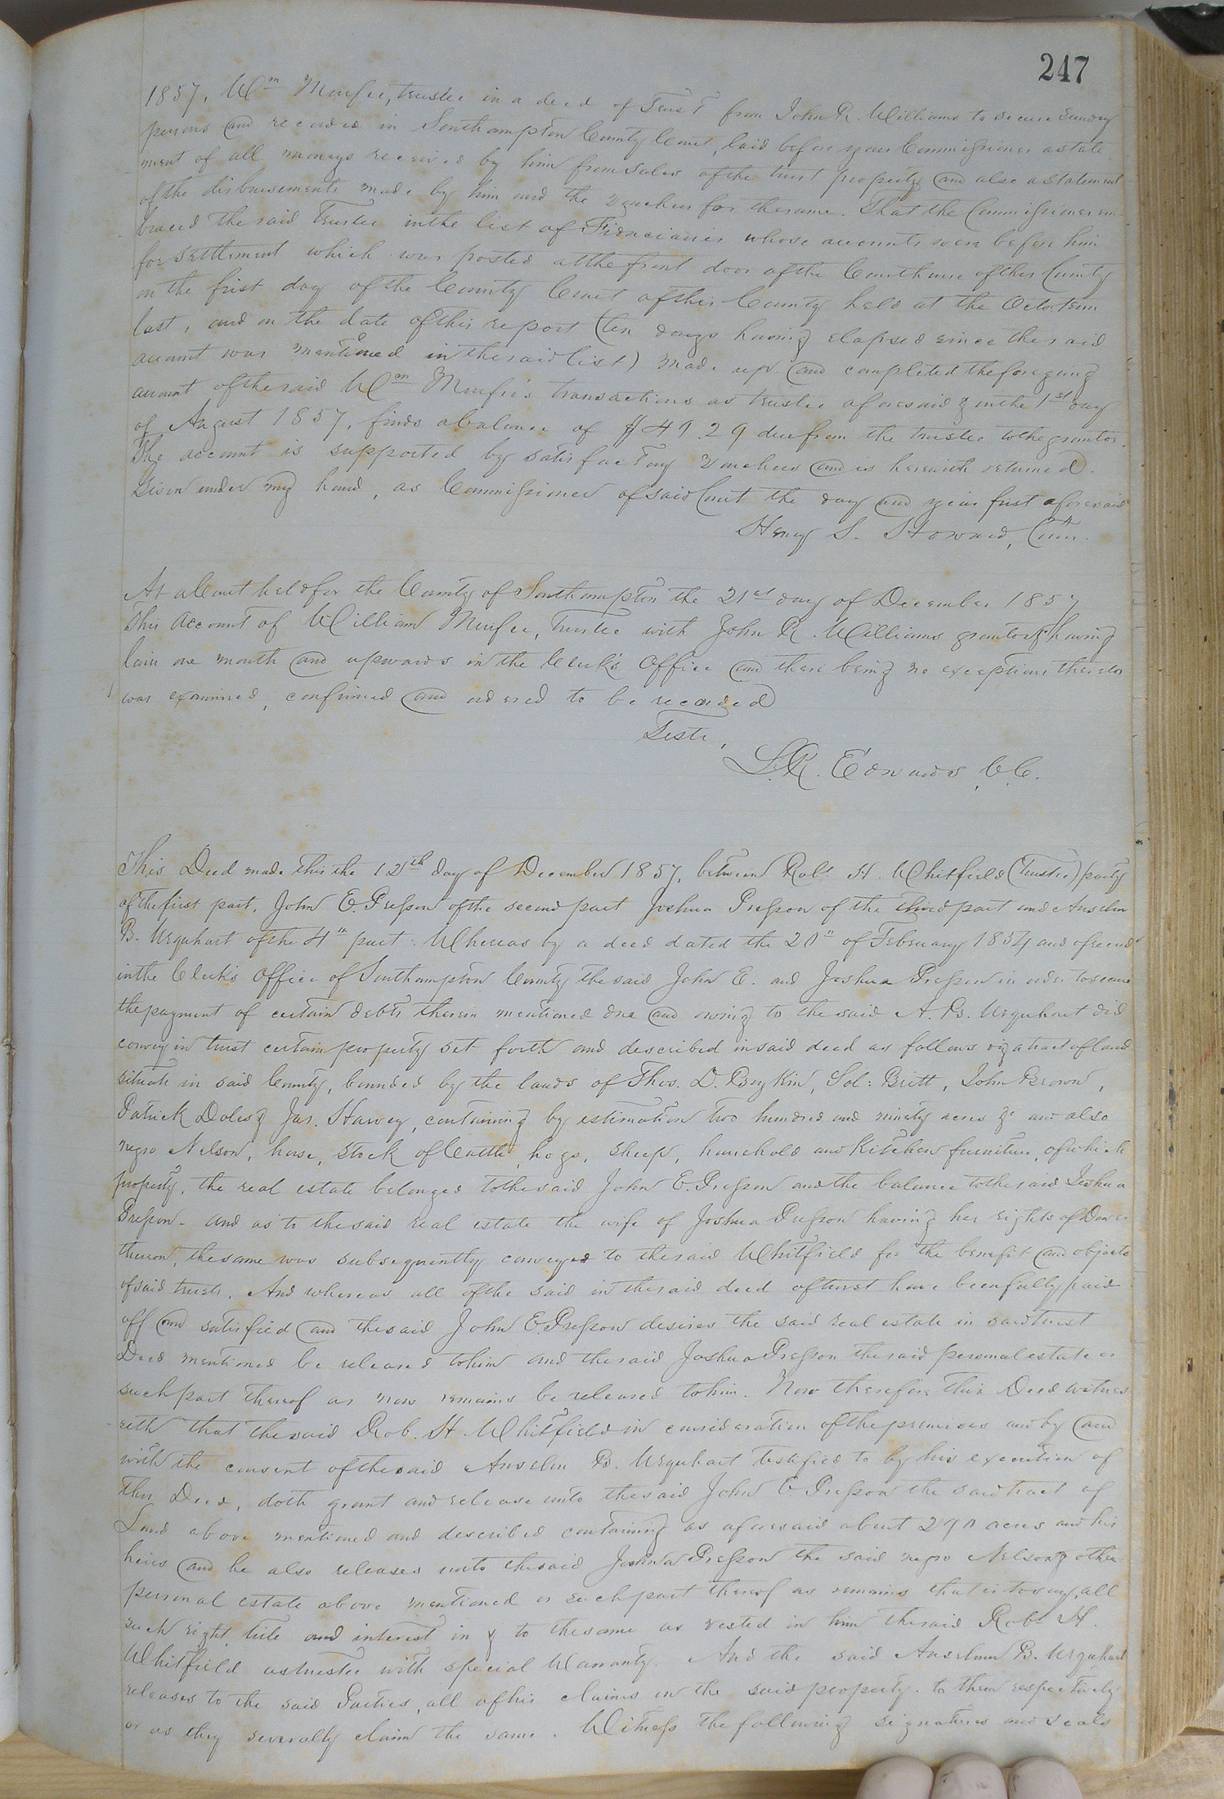 247
1857, Wm Minfee, trustee in a deed of Trust from John R. Williams to secure sundry
persons and recorded in Southampton County Court, laid before your Commissioner a state
ment of all moneys received by him from sales of the trust property and also a statement
of the disbursements made by him and the vouchers for the same. That the Commissioner em
braced the said Trustee in the list of Fiduciaries whose accounts were before him
for settlement which was posted at the front door of the Courthouse of this County
on the first day of the County Court of this County held at the Octo: term
last, and on the date of this report (ten days having elapsed since the said
account was mentioned in the said list) made up and completed the foregoing
account of the said Wm Minfee's transactions as trustee aforesaid & on the 1st day
of August 1857, finds a balance of $49.29 due from the trustee to the grantor.
The account is supported by satisfactory vouchers and is herewith returned.
Given under my hand, as Commissioner of said Court the day and year first aforesaid
Henry S. Howard, Com.
At a Court held for the County of Southampton the 21st day of December 1857
This Account of William Minfee, Trustee with John R. Williams grantor & having
lain one month and upwards in the Clerk's Office and there being no exceptions thereto
was examined, confirmed and ordered to be recorded
Teste,
L.R. Edwards, C.C.
This Deed made this the 12th day of December 1857, between Robt H. Whitfield (Trustee) party
of the first part, John E. Presson of the second part Joshua Presson of the third part and Anselm
B. Urquhart of the 4th part: Whereas by a deed dated the 20th of February 1854 and of record
in the Clerk's Office of Southampton County the said John E. and Joshua Presson in order to secure
the payment of certain debts therein mentioned due and owing to the said A. B. Urquhart did
convey in trust certain property set forth and described in said deed as follows viz a tract of land
situate in said County, bounded by the lands of Thos. D. Boykin, Sol: Britt, John Brown,
Patrick Doles & Jas. Harvey, containing by estimation two hundred and ninety acres & and also
negro Nelson, horse, stock of Cattle, hogs, sheep, household and Kitchen furniture, of which
property, the real estate belonged to the said John E. Presson and the balance to the said Joshua
Presson - and as to the said real estate the wife of Joshua Presson having her rights of Dower
thereon, the same was subsequently conveyed to the said Whitfield for the benefit and objects
of said trusts. And whereas all of the said in the said deed of trust have been fully paid
off and satisfied and the said John E Presson desires the said real estate in said trust
Deed mentioned be released to him and the said Joshua Presson the said personal estate or
such part thereof as now remains be released to him. Now therefore this Deed witnes
seth that the said Rob. H. Whitfield in consideration of the premises and by and
with the consent of the said Anselm B. Urquhart testified to by his execution of
this Deed, doth grant and release unto the said John E Presson the said tract of
Land above mentioned and described containing as aforesaid about 290 acres and his
heirs and he also releases unto the said Joshua Presson the said negro Nelson & other
personal estate above mentioned or such part thereof as remains that is to say, all
such right, title and interest in & to the same as vested in him the said Robt H.
Whitfield as trustee with special Warranty. And the said Anselm B. Urquhart
releases to the said Parties, all of his claims in the said property to them respectively
or as they severally claim the same. Witness the following signatures and seals